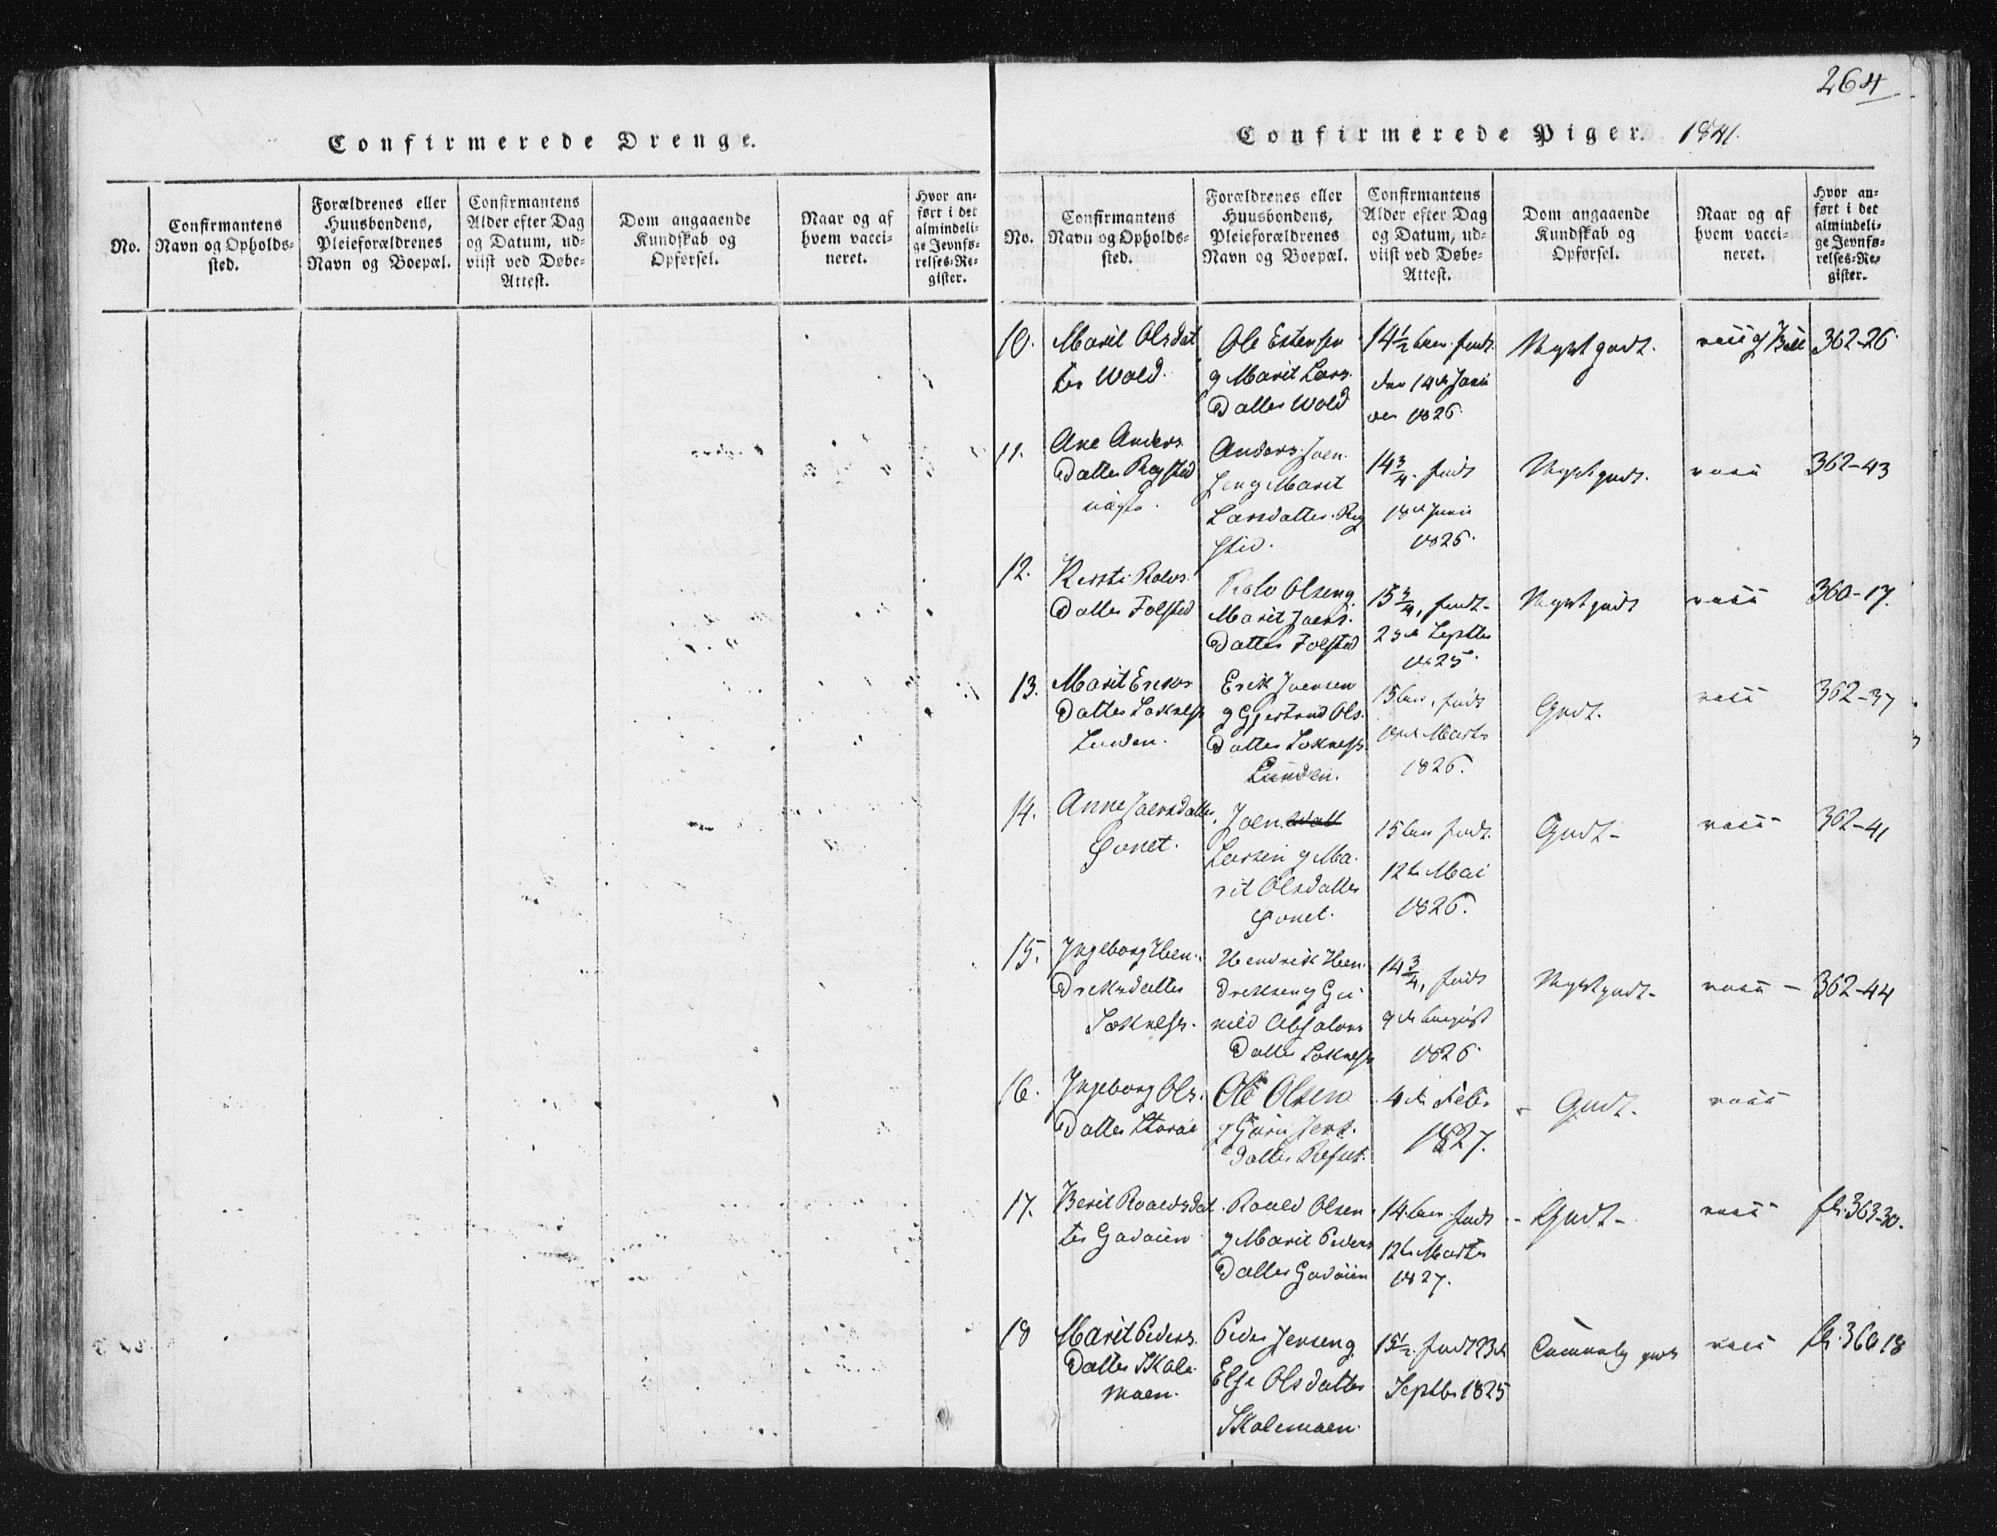 264
Confirmerede Drenge.
No.
Confirmantens
Navn og Opholds-
sted.
Forældrenes eller
Huusbondens,
Pleieforældrenes
Navn og Boepæl.
Confirmantens
Alder efter Dag
og Datum, ud-
viist ved Døbe-
Attest.
Dom angaaende
Kundskab og
Opførsel.
Naar og af
hvem vacci-
neret.
Hvor an-
ført i det
almindeli-
ge Jevnfø-
relses-Re-
gister.
Confirmerede Piger. 1841.
No.
Confirmantens
Navn og Opholds-
sted.
Forældrenes eller
Huusbondens,
Pleieforældrenes
Navn og Boepæl.
Confirmantens
Alder efter Dag
og Datum, ud-
viist ved Døbe-
Attest.
Dom angaaende
Kundskab og
Opførsel.
Naar og af
hvem vacci-
neret.
Hvor an-
ført i det
almindeli-
ge Jevnfø-
relses-Re-
gister.
10.
Marit Olsdat
ter Wold.
Ole Estensen
g Marit Lars
Datter Wold
14 1/2 født
den 14de
1826
Meget godt.
362-26
11.
Ane Anders
Datter
Anders Joen
sen g Marit
Larsdatter
14 3/4 født
18de Junii
1826.
Meget godt.
vacc
362-43
12.
Kersti Rolvs
Datter Folstad
Rolv Olsen g
Marit Joens
Datter Folstad
15 3/4, født
Septbr
1825.
Meget godt
vacc
360-17.
13.
Marit Eriks
Datter Loknes
Lunden.
Erik Joensen
g Gjertrud Ols
Datter Loknes
Lunden.
15 født
Marts
1826.
Godt.
vacc
362-37
14.
Anne Joensdatter
Joen
Larsen g Ma
rit Olsdatter
15 født.
12te Mai
1826.
Godt
vacc
362-41
15.
Ingeborg Hen
Driksdatter
Loknes.
Hendrik Hen
Driksen g Gu
nild Absalons
Datter Loknes
14 3/4, født
9de August
1826.
Meget godt
vacc
362-44
16.
Ingeborg Ols
Datter
Ole Olsen
g Jens
Datter
4de Feb.
1827.
Godt.
vacc
17.
Berit Roaldsdat
ter Gadøien
Roald Olsen
g Marit Peders
Datter Gadøien
14 født
12te Marts
1827.
Godt
vacc
fl. 363-30.
18
Marit Peders
Datter Skole
moen.
Peder Jensen g
Else Olsdatter
Skolemoen.
15 1/2. født 23de
Septbr 1825
godt
vacc
fl. 360 18